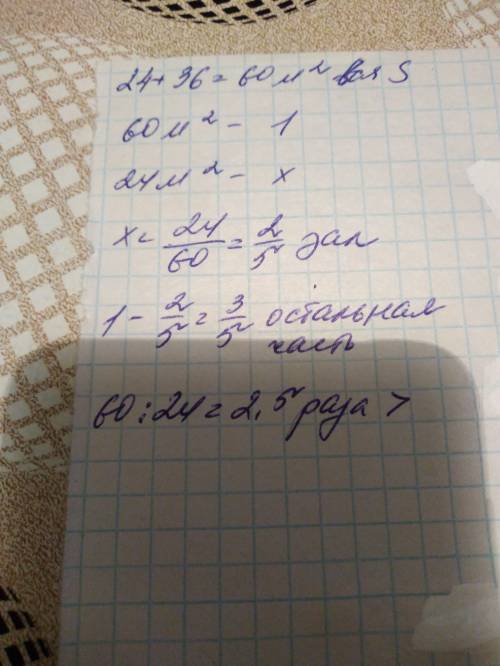 24+36=60м² вся S
60м² - 1
24м² - x
x= 24/60 = 2/5 зал
1 - 2/5 = 3/5 остальная
часть
60:24=2,5 раза >